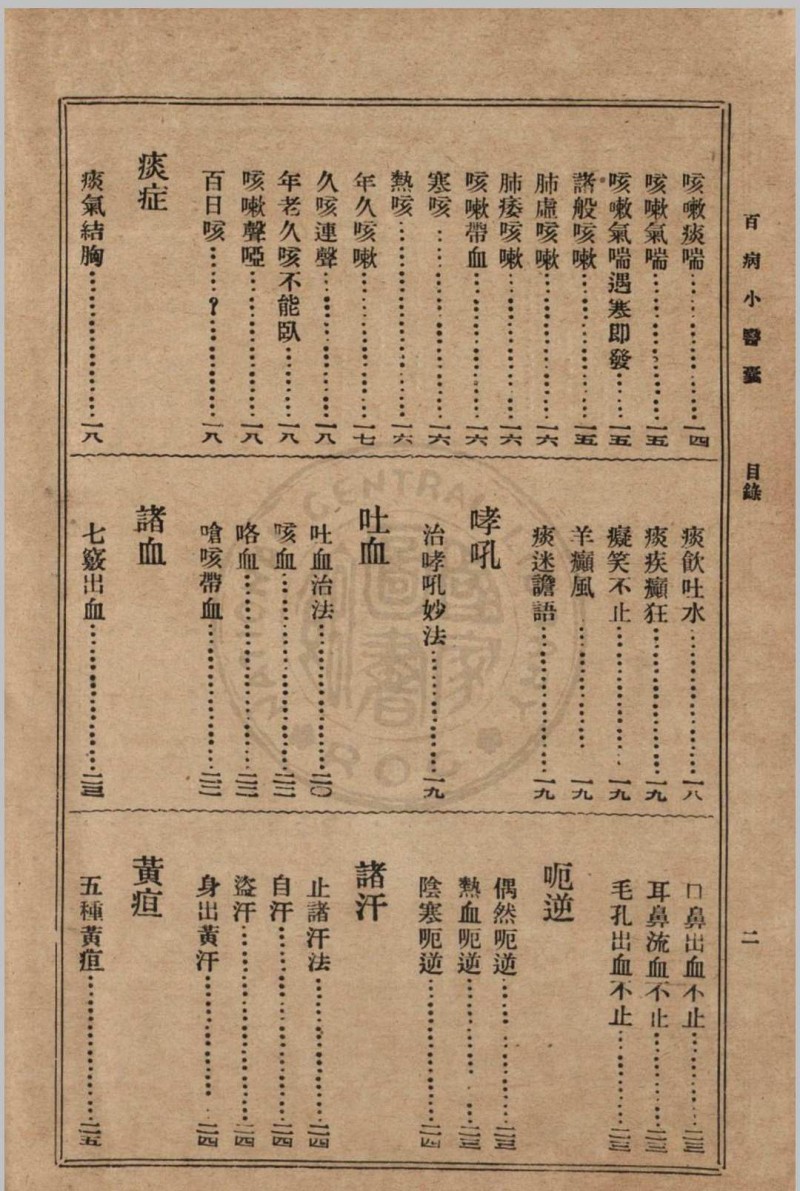 百病小醫囊 目錄 二
咳嗽痰喘……一四
咳嗽氣喘……一五
咳嗽氣喘遇寒即發……一五
諸般咳嗽……一五
肺虛咳嗽……一六
肺痿咳嗽……一六
咳嗽帶血……一六
寒咳……一六
熱咳……一六
年久咳嗽……一七
久咳連聲……一八
年老久咳不能臥……一八
咳嗽聲啞……一八
百日咳……一八
痰症
痰氣結胸……一八
痰飲吐水……一八
痰疾癲狂……一九
癡笑不止……一九
羊癲風……一九
痰迷譫語……一九
哮吼
治哮吼妙法……一九
吐血
吐血治法……二〇
咳血……二二
咯血……二二
嗆咳帶血……二二
諸血
七竅出血……二三
口鼻出血不止……二三
耳鼻流血不止……二三
毛孔出血不止……二三
呃逆
偶然呃逆……二三
熱血呃逆……二三
陰寒呃逆……二四
諸汗
止諸汗法……二四
自汗……二四
盜汗……二四
身出黃汗……二四
黃疸
五種黃疸……二五